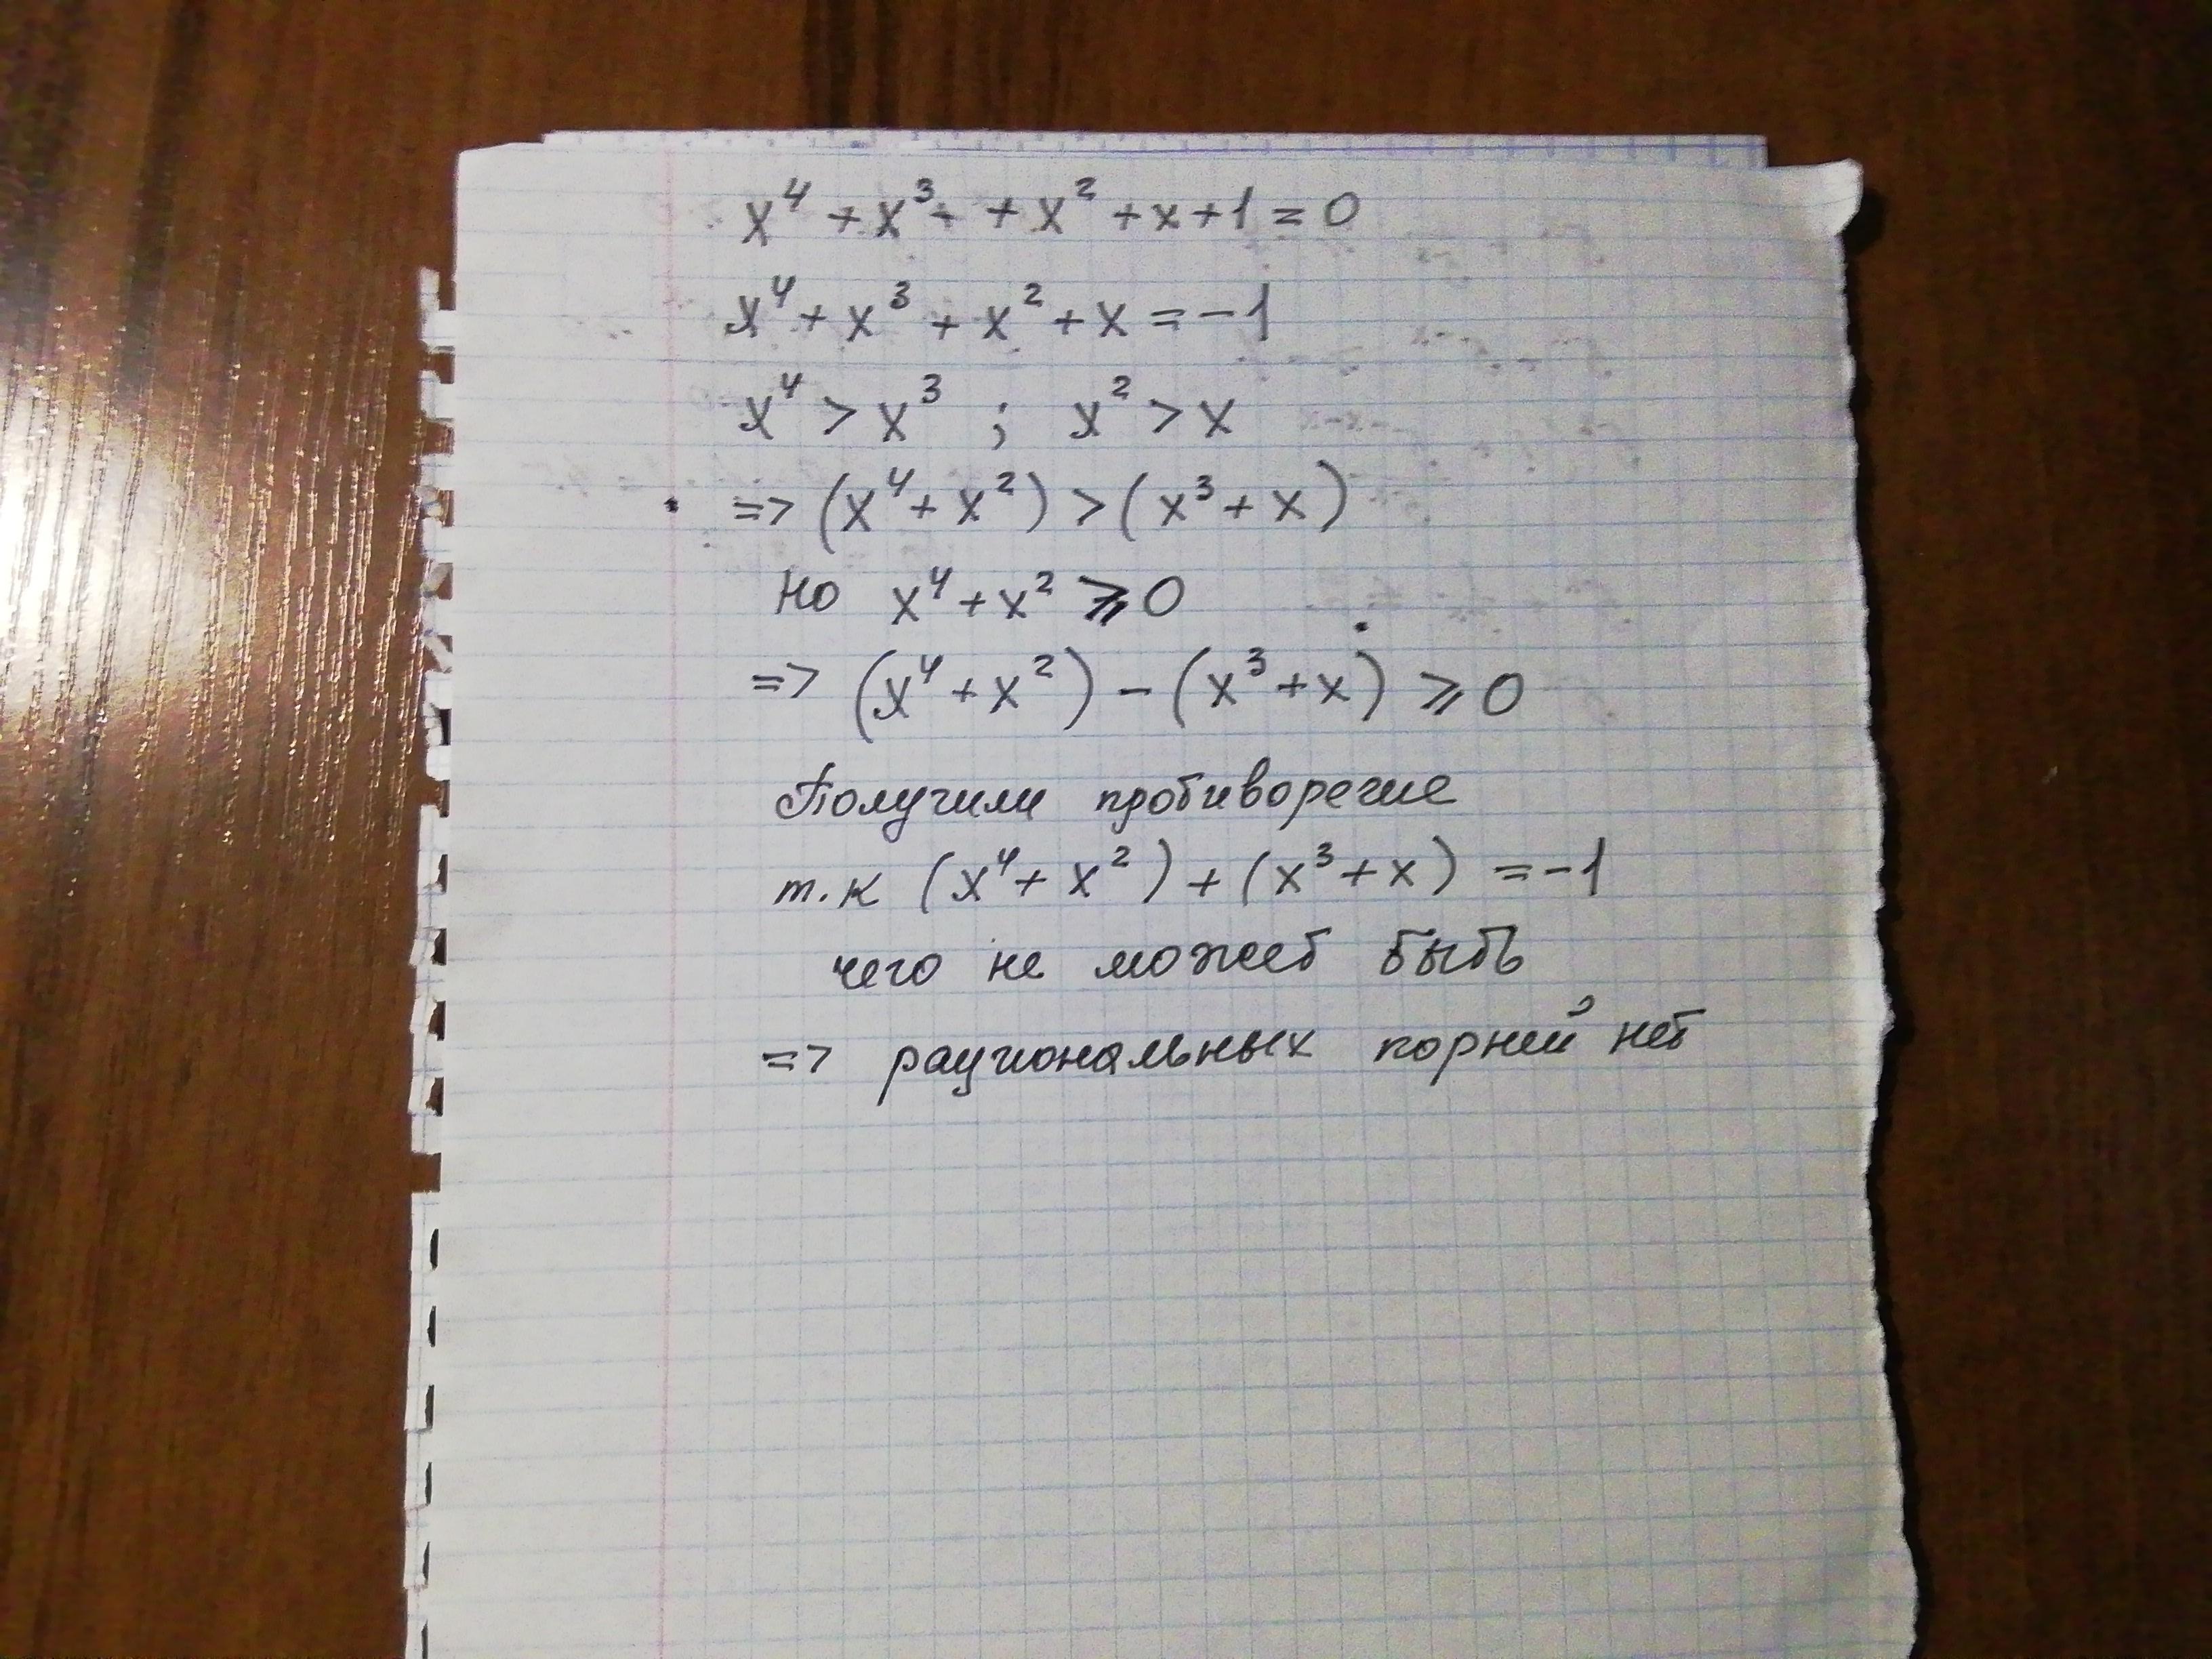 x⁴ + x³ + + x² + x + 1 = 0
x⁴ + x³ + x² + x = -1
x⁴ > x³ ; x² > x
=> (x⁴ + x²) > (x³ + x)
но x⁴ + x² ⩾ 0
=> (x⁴ + x²) - (x³ + x) ⩾ 0
Получили противоречие
т.к (x⁴ + x²) + (x³ + x) = -1
чего не может быть
=> рациональных корней нет